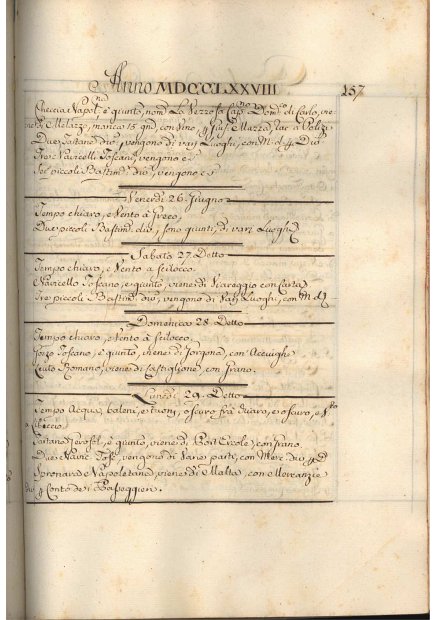 Anno MDCCLXXVIII 157
Checcia Napol.na è giunto, nom.a La Vezzosa Cap.no Dom.co di Carlo, vie
ne di Melazzo, manca 15 gni, con Vino
Due Tartane div.e, vengono di varj Luoghi, con M. d.
Tre Navicelli Toscani, vengono
Sei piccoli Bastim. div., vengono
Venerdi 26. Giugno
Tempo chiaro, e Vento à Greco,
Due piccoli Bastim. div., sono giunti, di varj Luoghi
Sabato 27. Detto
Tempo chiaro, e Vento a scilocco
Navicello Toscano, è giunto, viene di Viareggio con
Tre piccoli Bastim. div., vengono di Varj Luoghi, con M. d.
Domenica 28. Detto
Tempo chiaro, e Vento à scilocco
Gozzo Toscano, è giunto, viene di Gorgona, con Acciughe
Leuto Romano, viene di Castiglione, con Grano.
Lunedi 29. Detto
Tempo Acqua, baleni, e tuoni, oscuro frà chiaro, e oscuro, e V.to
a libeccio
Tartana è giunto, viene di Port'Ercole, con grano
Due Navic. Tosc., vengono di Varie parti, con Merc. div.
Speronara Napoletana, viene di Malta, con Mercanzie
div. p Conto de i Passeggieri.